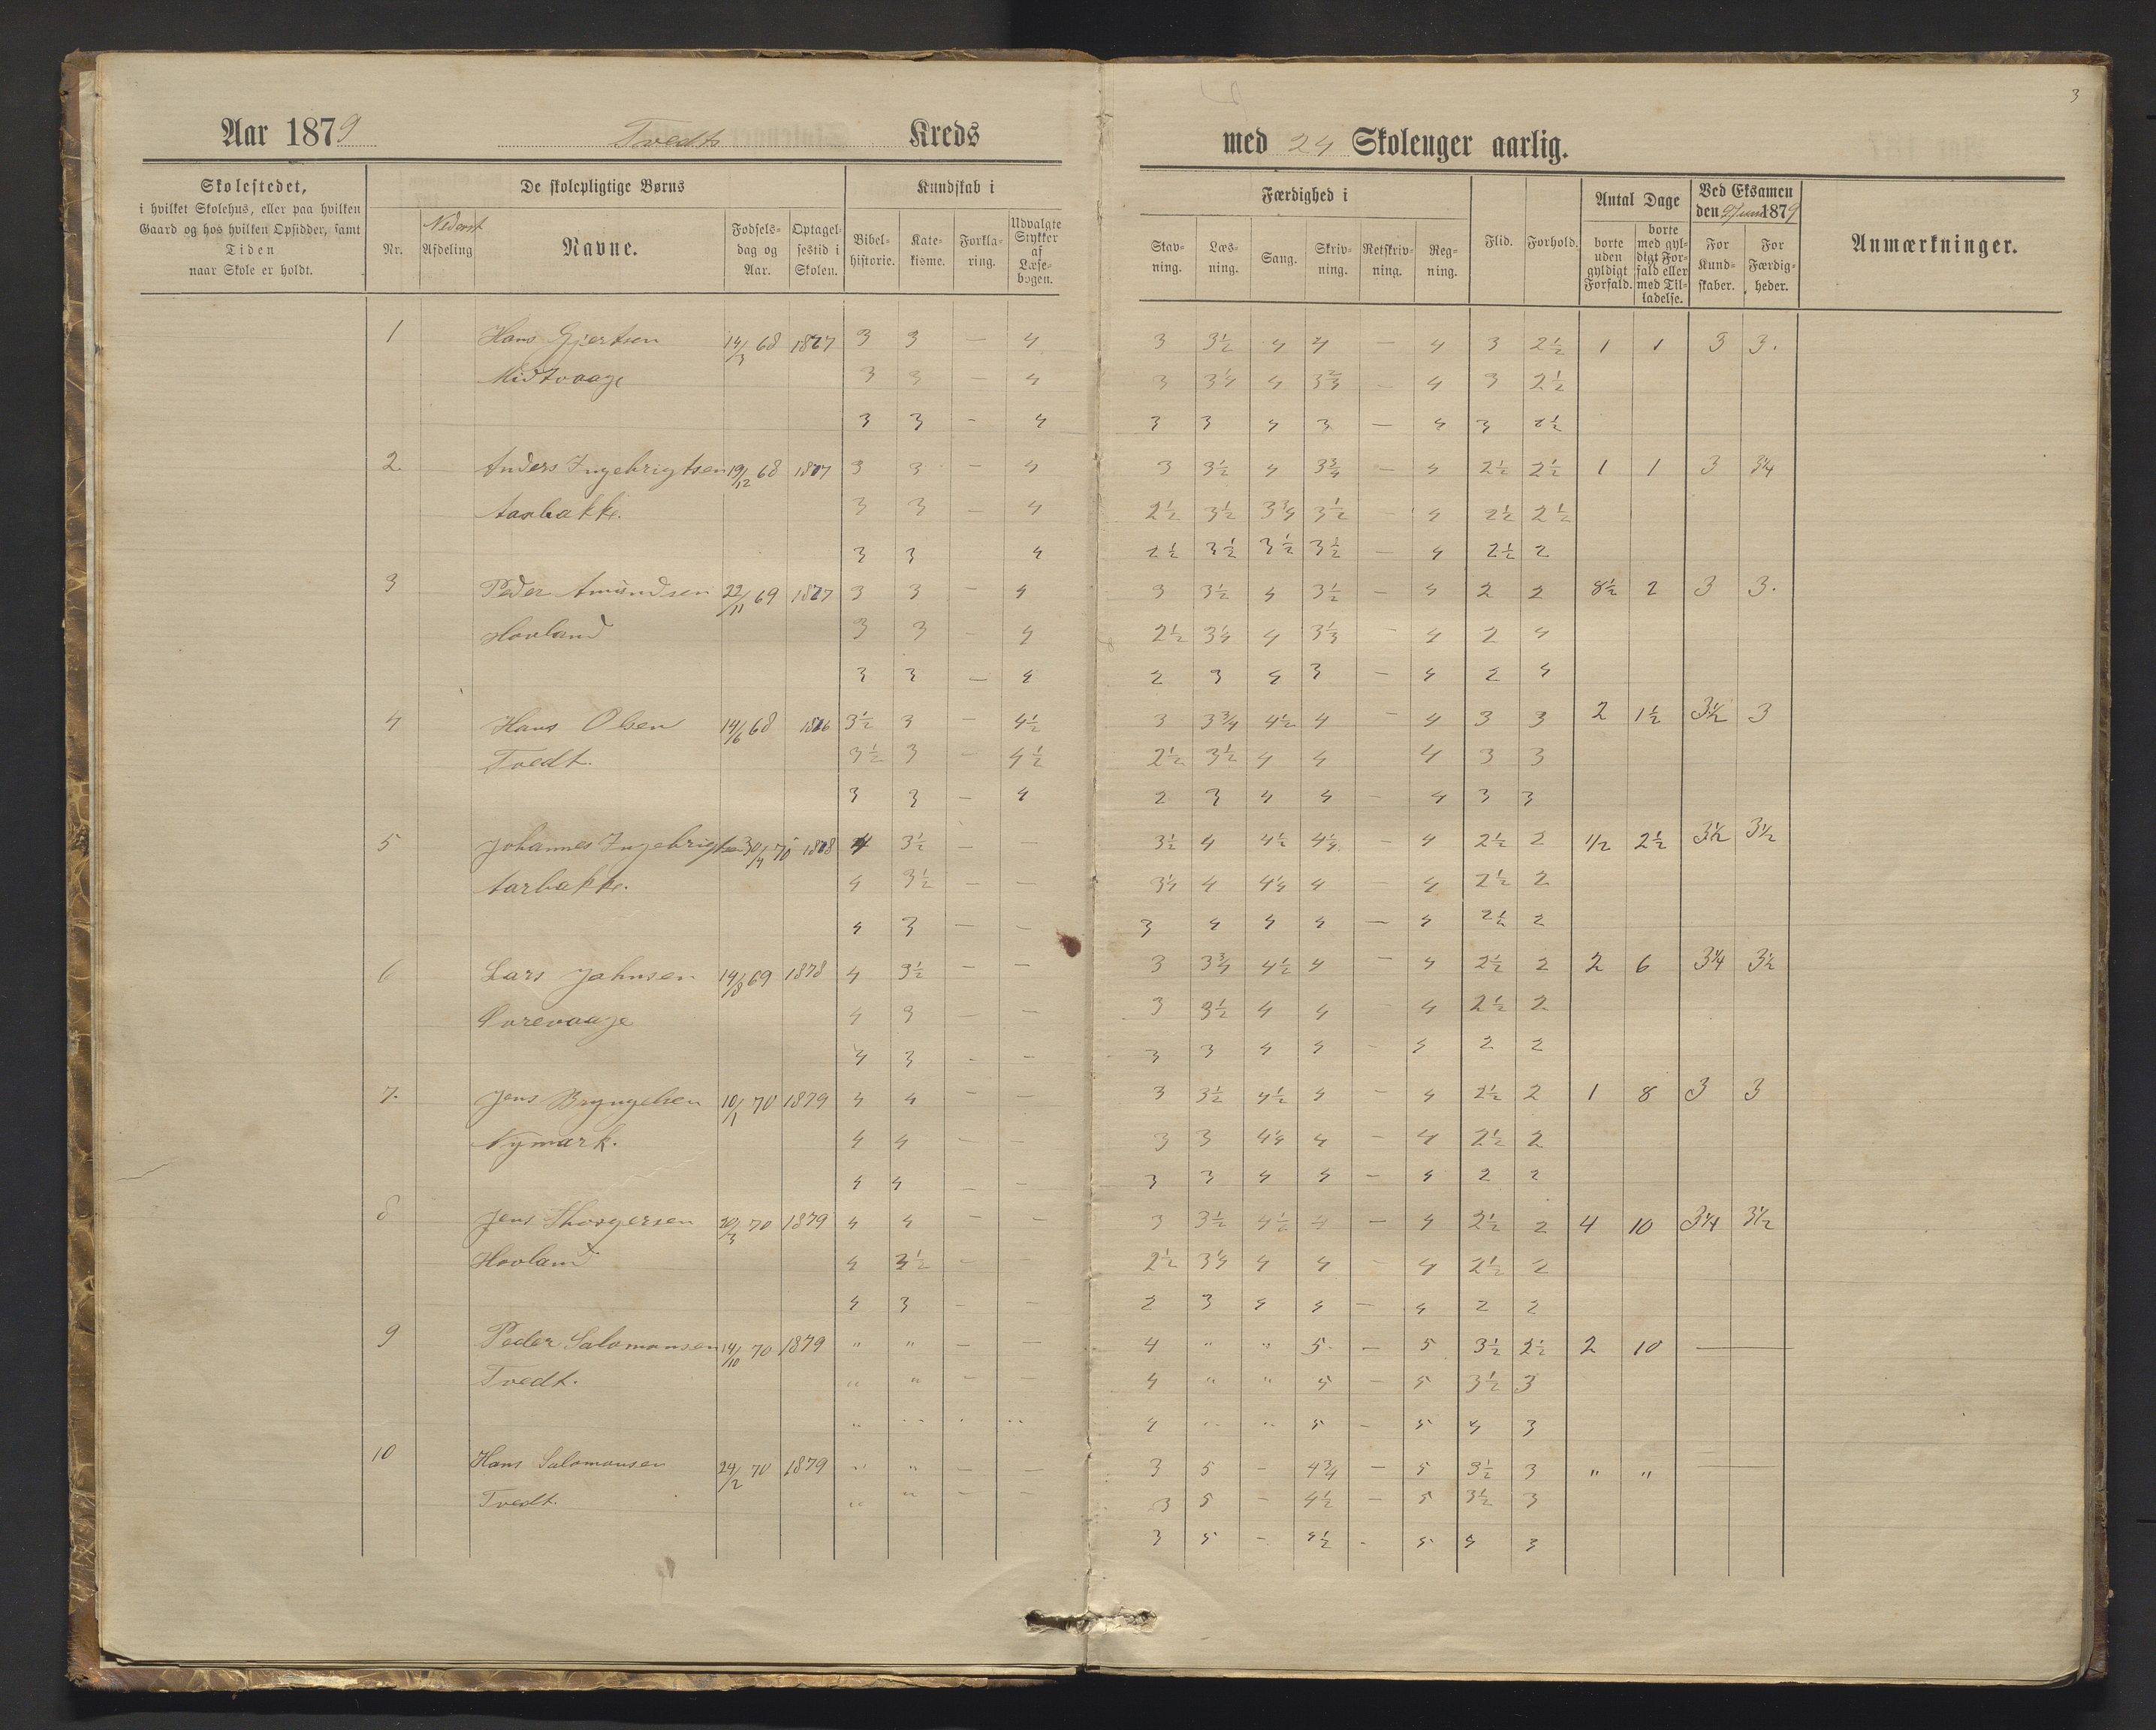 3
Aar 1879 Tvedts Kreds
med 24 Skolenger aarlig.
Skolestedet,
i hvilket Skolehus, eller paa hvilken
Gaard og hos hvilken Opsidder, samt
Tiden
naar Skole er holdt.
De skolepligtige Børns
Nr.
Nederst
Afdeling
Navne.
Fødsels-
dag og
Aar.
Optagel-
sestid i
Skolen.
Kundskab i
Bibel-
historie.
Kate-
kisme.
Forkla-
ring.
Udvalgte
Stykker
af
Læse-
bogen.
Færdighed i
Stav-
ning.
Læs-
ning.
Sang.
Skriv-
ning.
Retskriv-
ning.
Reg-
ning.
Flid.
Forhold.
Antal Dage
borte
uden
gyldigt
Forfald.
borte
med gyl-
digt For-
fald eller
med Til-
ladelse.
Ved Eksamen
den 9 Juni 1879
For
Kund-
skaber.
For
Færdig-
heder.
Anmærkninger.
1 Hans Gjertsen 14/3 68 1877 3 3 — 4 3 3½ 4 4 — 4 3 2½ 1 1 3 3.
Midtvaage 3 3 — 4 3 3¼ 4 3⅔ — 4 3 2½
3 3 — 4 3 3 4 3 — 4 3 2½
2 Anders Ingebrigtsen 19/12 68 1877 3 3 — 4 3 3½ 4 3¾ — 4 2½ 2½ 1 1 3 3¼
Aarbakke. 3 3 — 4 2½ 3½ 3¾ 3½ — 4 2½ 2½
3 3 4 2½ 3½ 3½ 3½ — 4 2½ 2
3 Peder Amundsen 22/11 69 1877 3 3 — 4 3 3½ 4 3½ — 4 2 2 8½ 2 3 3.
Hovland 3 3 — 4 2½ 3¼ 4 3⅓ — 4 2 4
3 3 — 4 2 3 4 3 — 4 2 4
4 Hans Olsen 14/6 68 1876 3½ 3 — 4½ 3 3¾ 4½ 4 — 4 3 3 2 1½ 3½ 3
Tvedt. 3½ 3 — 4½ 2½ 3½ 4 4 4 3 3
3 3 — 4 2 3 4 4 — 4 3 3
5 Johannes Ingebrigtsen 30/4 70 1878 4 3½ — — 3½ 4 4½ 4¼ — 4 2½ 2 1/2 2½ 3½ 3½
Aarbakke. 4 3½ — — 3¼ 4 4¼ 4 — 4 2½ 2
4 3 — — 3 4 4 4 — 4 2½ 2
6 Lars Johnsen 14/8 69 1878 4 3½ — — 3 3¾ 4½ 4 — 4 2½ 2 2 6 3¼ 3½
Øvrevaage 4 3 — — 3 3½ 4 4 — 4 2½ 2
4 3 — — 3 3 4 4 — 4 2 2
7. Jens Bryngelsen 10/1 70 1879 4 4 — — 3 3½ 4½ 4 — 4 2½ 2 1 8 3 3
Nymark. 4 4 — — 3 3 4¼ 4 — 4 2½ 2
4 4 — — 3 3 4 4 — 4 2 2
8 Jens Thorgersen 20/3 70 1879 4 4 — — 3 3½ 4½ 4 — 4 2½ 2 4 10 3¼ 3½
Hovland 4 3½ — — 2½ 3¼ 4 4 — 4 2½ 2
4 3 — — 2 3 4 4 — 4 2 2
9 Peder Salomonsen 14/10 70 1879 " " — — 4 " " 5 — 5 3½ 2½ 2 10 —
Tvedt. " " — — 4 " " 5 — 5 3½ 3
" " " " 4 " " 5 — 5 4 3
10 Hans Salomonsen 24/2 70 1879 " " — — 3 5 — 4¾ — 5 3½ 3 " " —
Tvedt. " " — — 3 5 — 4½ — 5 3½ 3
3 5 — 4½ — 5 4 3